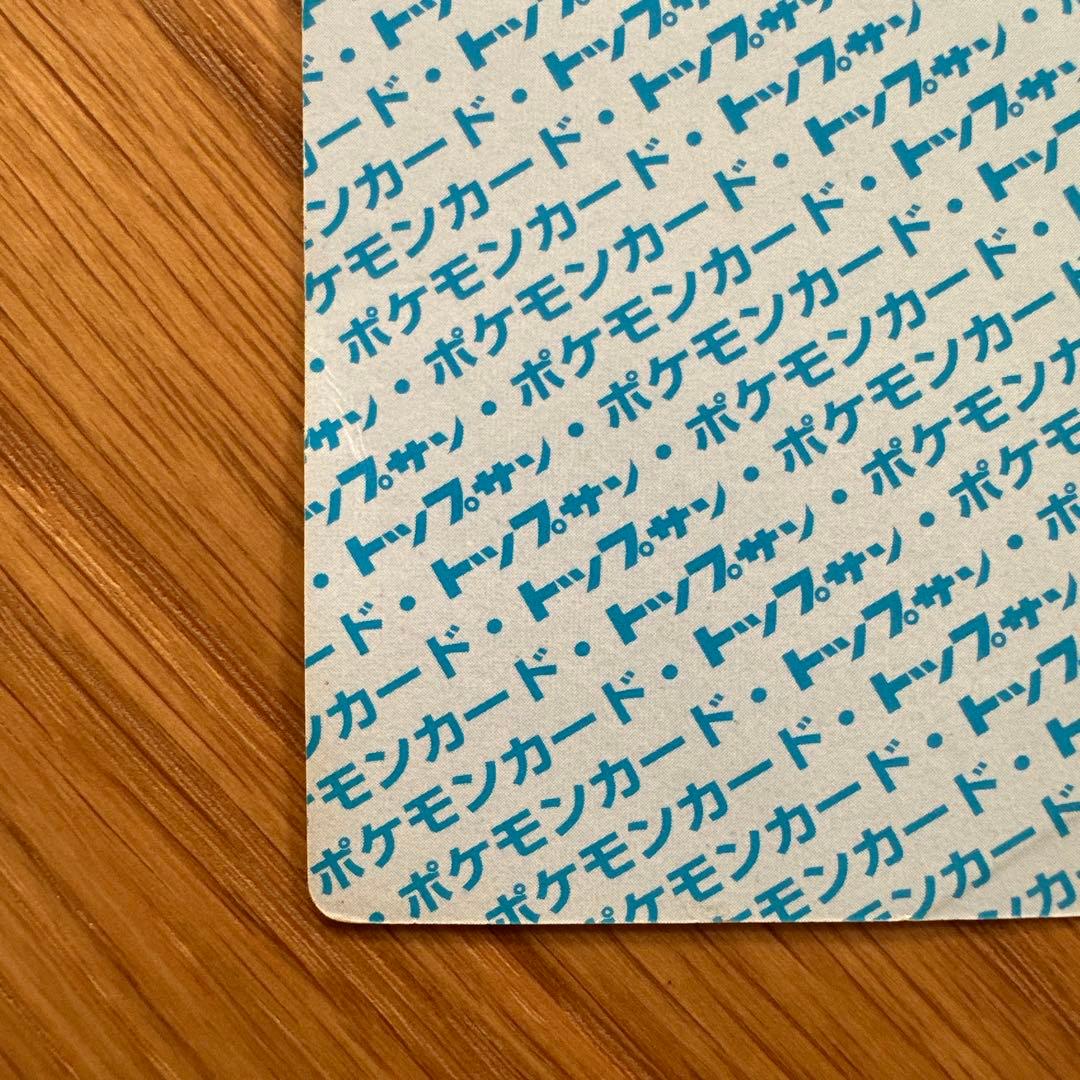 ド・ト
カード・トッ
ンカード・トップ
ケモンカード・トップサ
・ポケモンカード・トップサン
サン・ポケモンカード・トップサン・
ップサン・ポケモンカード・トップサン
・トップサン・ポケモンカード・トップ
ード・トップサン・ポケモンカード・
ンカード・トップサン・ポケモンカー
モンカード・トップサン・ポケモンカ
ポケモンカード・トップサン・ポケモ
・ポケモンカード・トップサン・ポ
ポケモンカード・トップサン
ポケモンカード・トップ
ケモンカード・ト
ンカード
カ